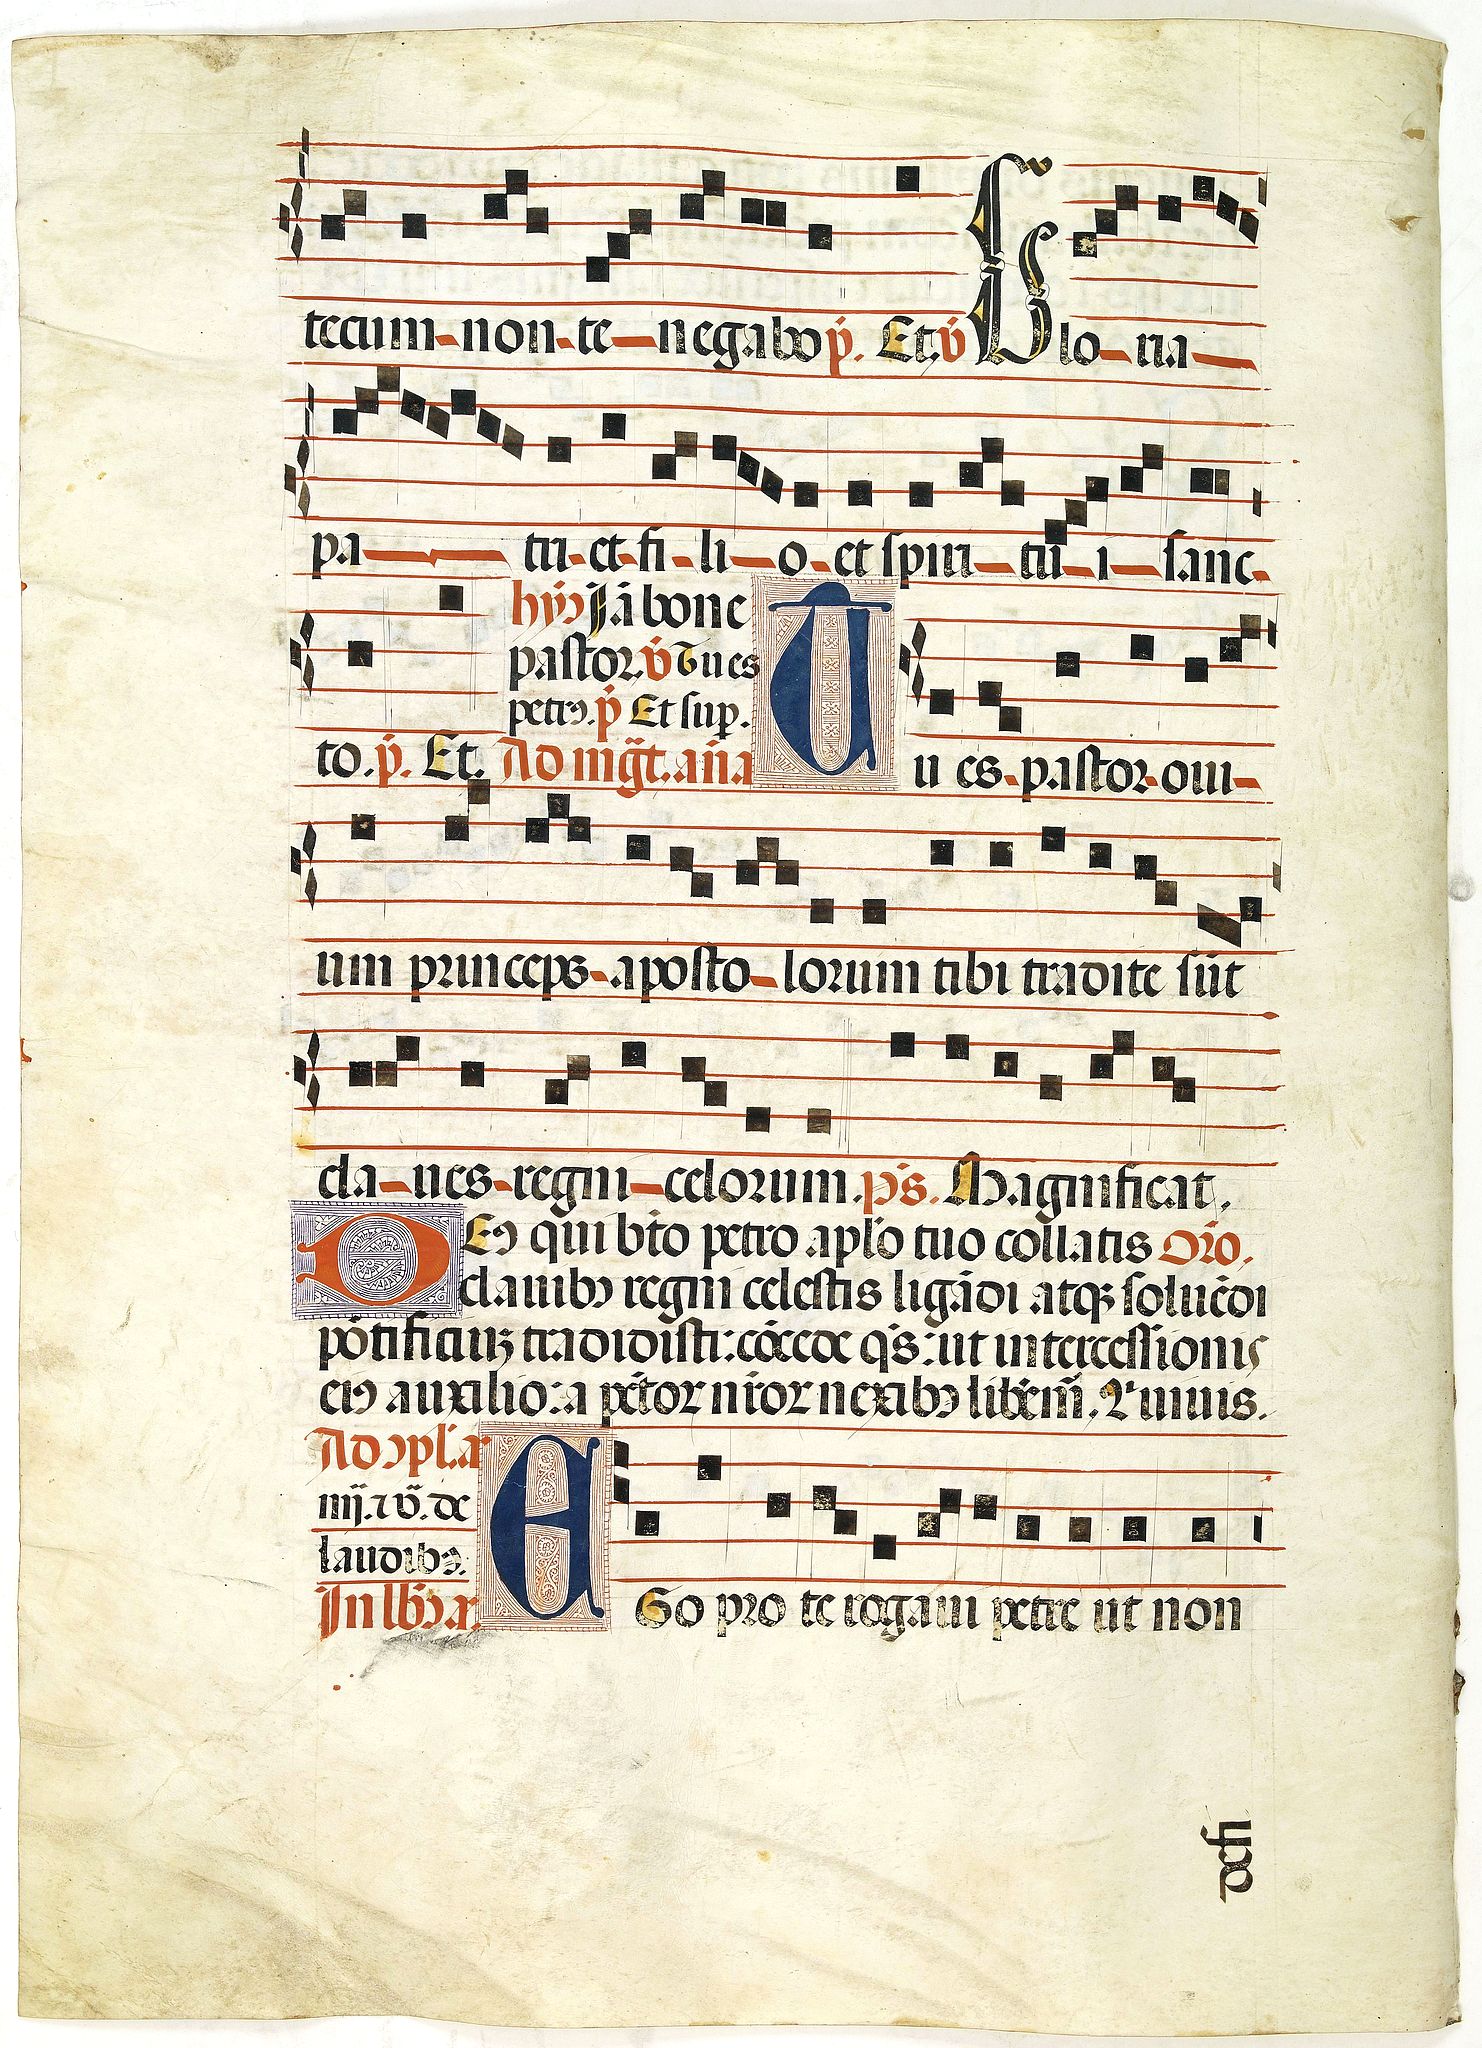 tecum non te negabo p̄. Et. v̄ Gloria
pa tri et fi li o et spiri tu i sanc
hȳ Iā bone
pastor. v̄ Tu es
petrꝰ. p̄ Et sup.
to. p̄. Et. Ad mḡt. an̄a Tu es pastor oui
um princeps apostolorum tibi tradite sūt
claues regni celorum. p̄s. Magnificat.
Deꝰ qui bt̄o petro aplo tuo collatis Oro.
clauibꝰ regni celestis ligādi atqꝫ soluēdi
pōtificiuꝫ tradidisti: cōcede qs̄: ut intercessionis
eiꝰ auxilio: a pctōꝝ nr̄oꝝ nexibꝰ liberem̄. Qui uiuis.
Ad ꝯpl. a
mij. ⁊ v̄. de
laudibꝰ.
In lb̄. a. Ego pro te rogaui petre ut non